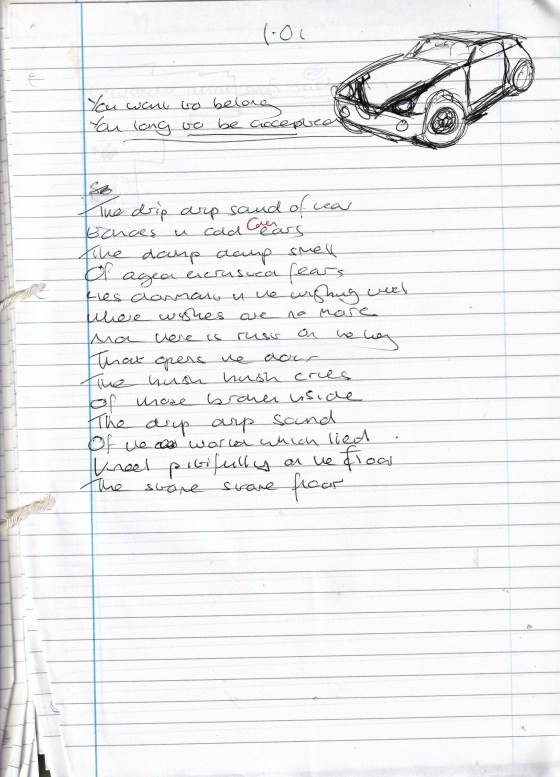 1.01
You want to belong
You long to be accepted
The drip drip sand of
Echoes in cold Coen ears
The damp damp smell
Of aged encrusted fears
Lies dormant in the wishing well
Where wishes are no more
there is rust on the key
That opens the door
The hush hush cries
Of those broken inside
The drip drip sand
Of the world which lied
Kneel pitifully on the floor
The stone stone floor